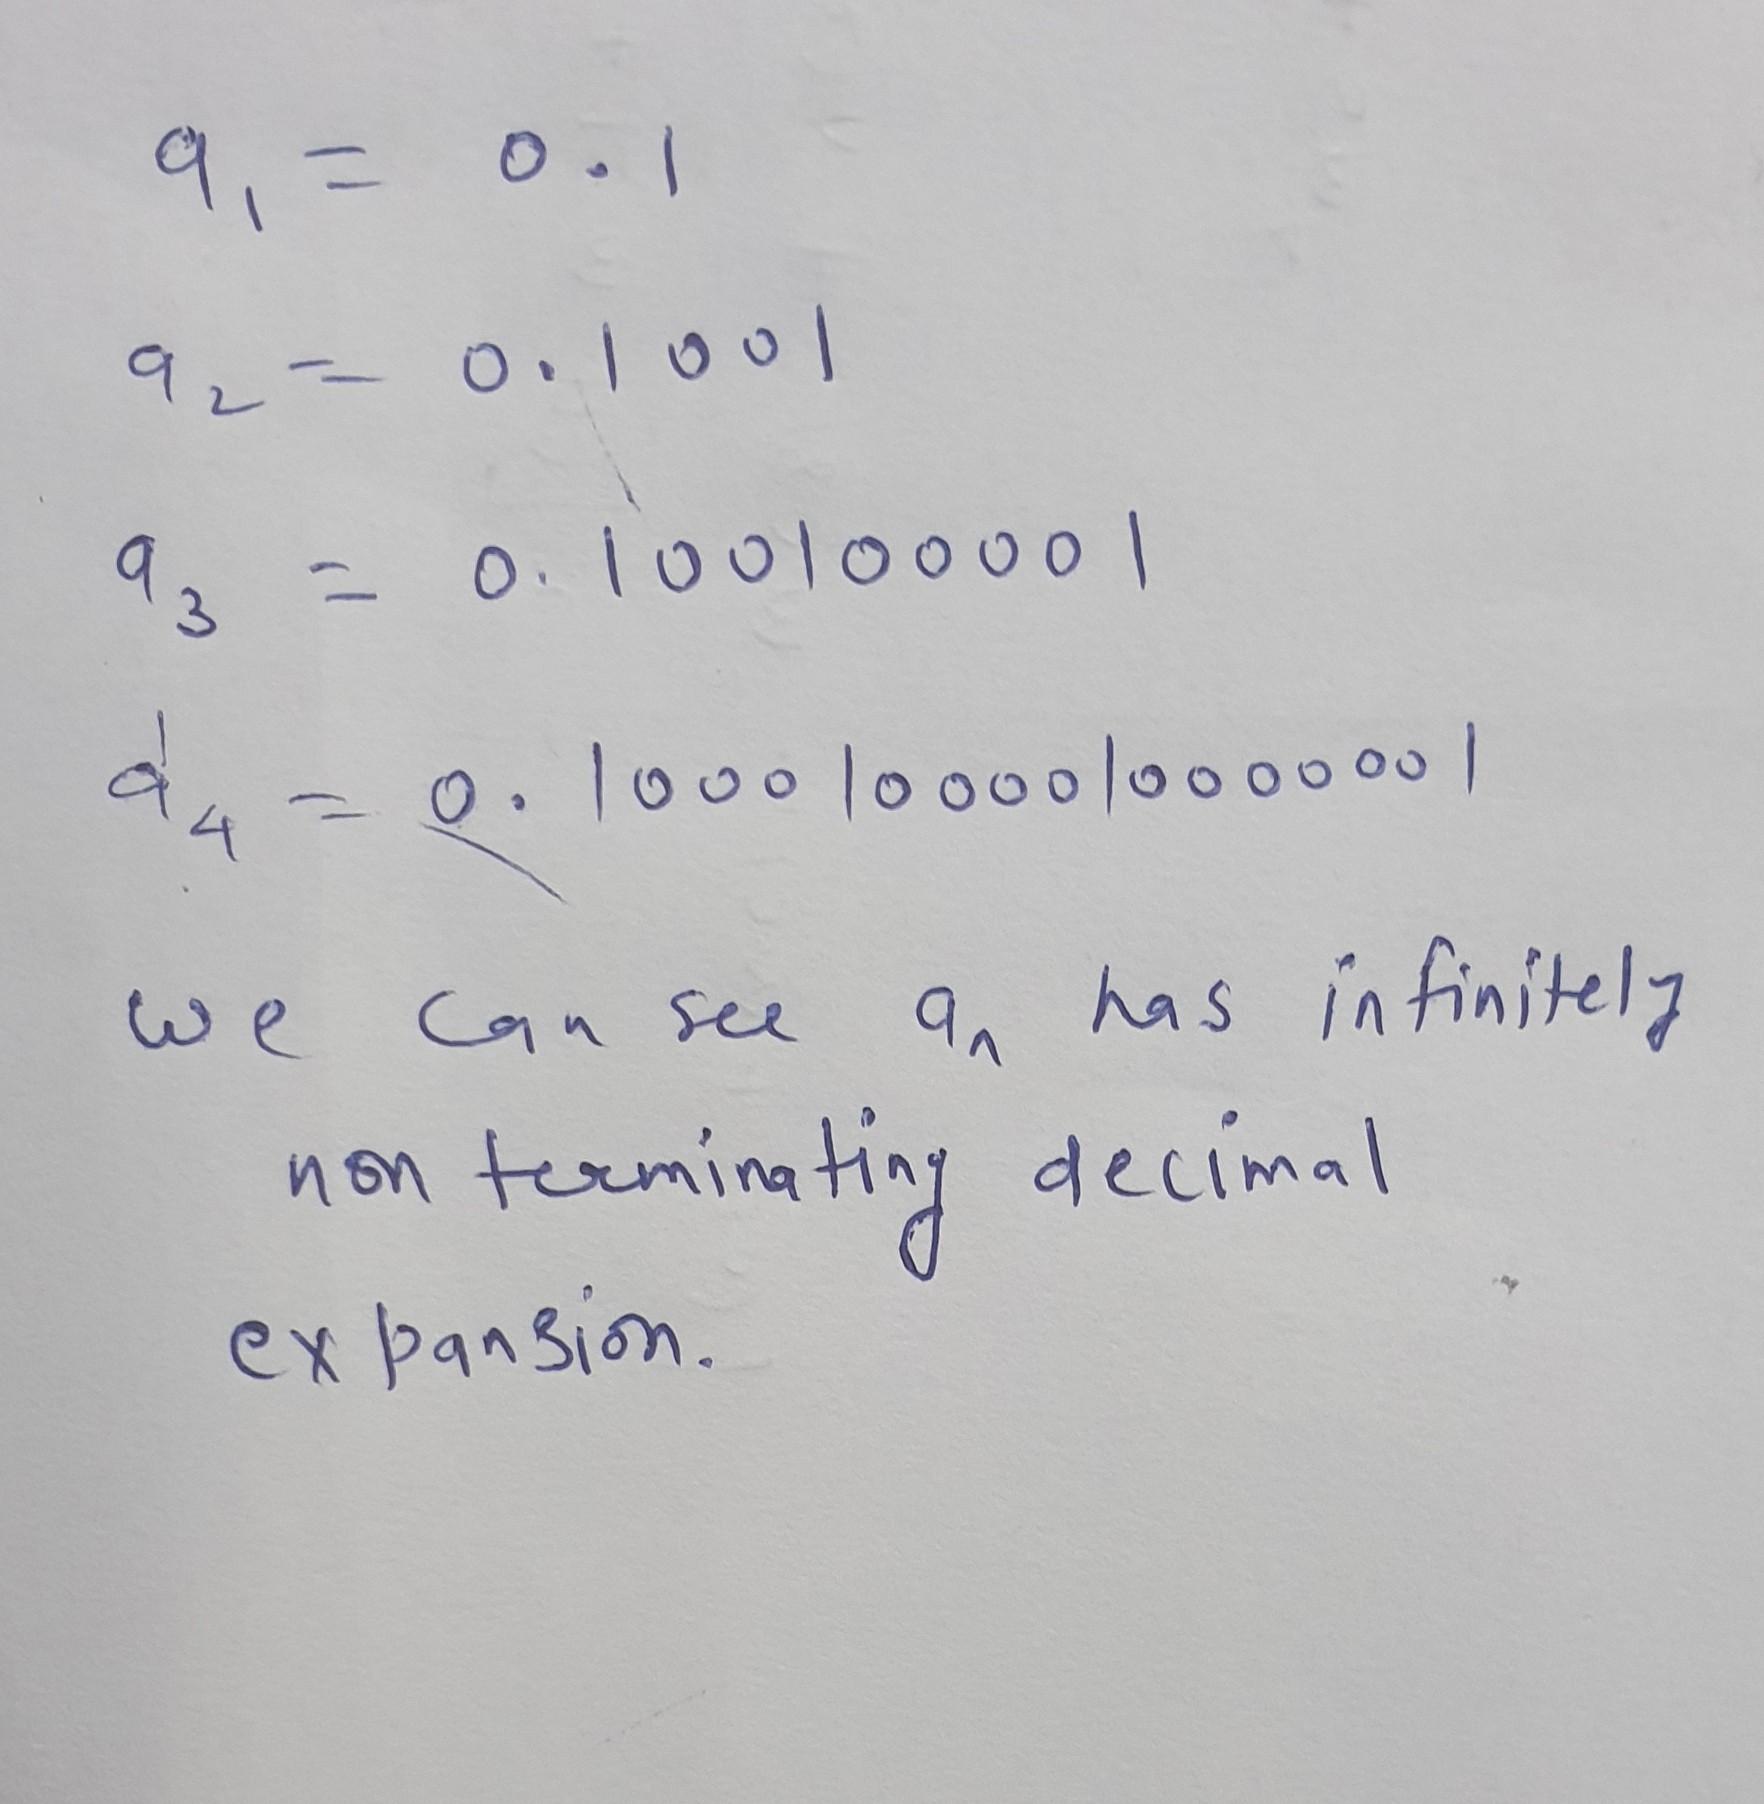 a₁ = 0.1
a₂ = 0.1001
a₃ = 0.100100001
a₄ = 0.10001000010000001
we can see aₙ has infinitely
non terminating decimal
expansion.